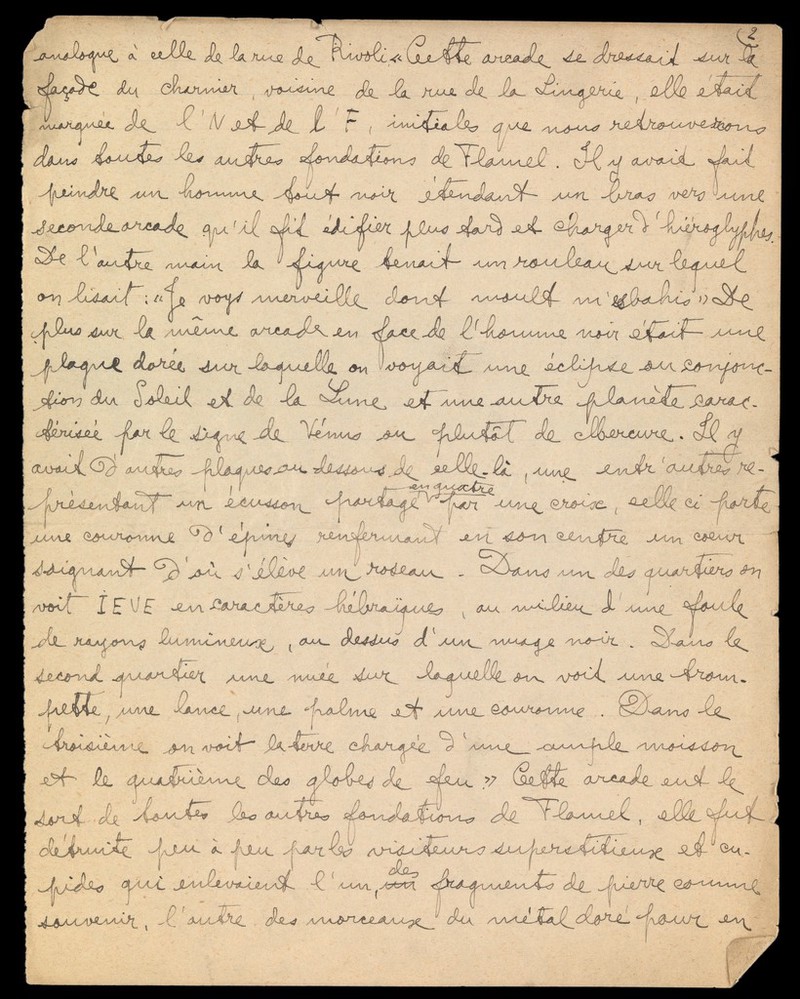 2
analogue à celle de la rue de Rivoli « Cette arcade se dressait sur la
façade du charnier, voisine de la rue de la Lingerie, elle était
marquée de l'N et de l'F, initiales que nous retrouverons
dans toutes les autres fondations de Flamel. Il y avait fait
peindre un homme tout noir étendant un bras vers une
seconde arcade qu'il fit édifier plus tard et charger d'hiéroglyphes.
De l'autre main la figure tenait un rouleau sur lequel
on lisait : « Je voys merveille dont moult m'esbahis » De
plus sur la même arcade en face de l'homme noir était une
plaque dorée sur laquelle on voyait une éclipse ou conjonc-
tion du Soleil et de la Lune et une autre planète carac-
térisée par le signe de Vénus ou plutôt de Mercure. Il y
avait d'autres plaques au-dessous de celle-là, une entr'autres re-
présentant un écusson partagé en quatre par une croix, celle ci porte
une couronne d'épines renfermant en son centre un coeur
saignant d'où s'élève un roseau. Dans un des quartiers on
voit IEVE en caractères hébraïques, au milieu d'une foule
de rayons lumineux, au dessus d'un nuage noir. Dans le
second quartier une nuée sur laquelle on voit une trom-
pette, une lance, une palme et une couronne. Dans le
troisième on voit la terre chargée d'une ample moisson
et le quatrième des globes de feu » Cette arcade eut le
sort de toutes les autres fondations de Flamel, elle fut
détruite peu à peu par les visiteurs superstitieux et cu-
pides qui enlevaient l'un, des fragments de pierre comme
souvenir, l'autre des morceaux du métal doré pour en